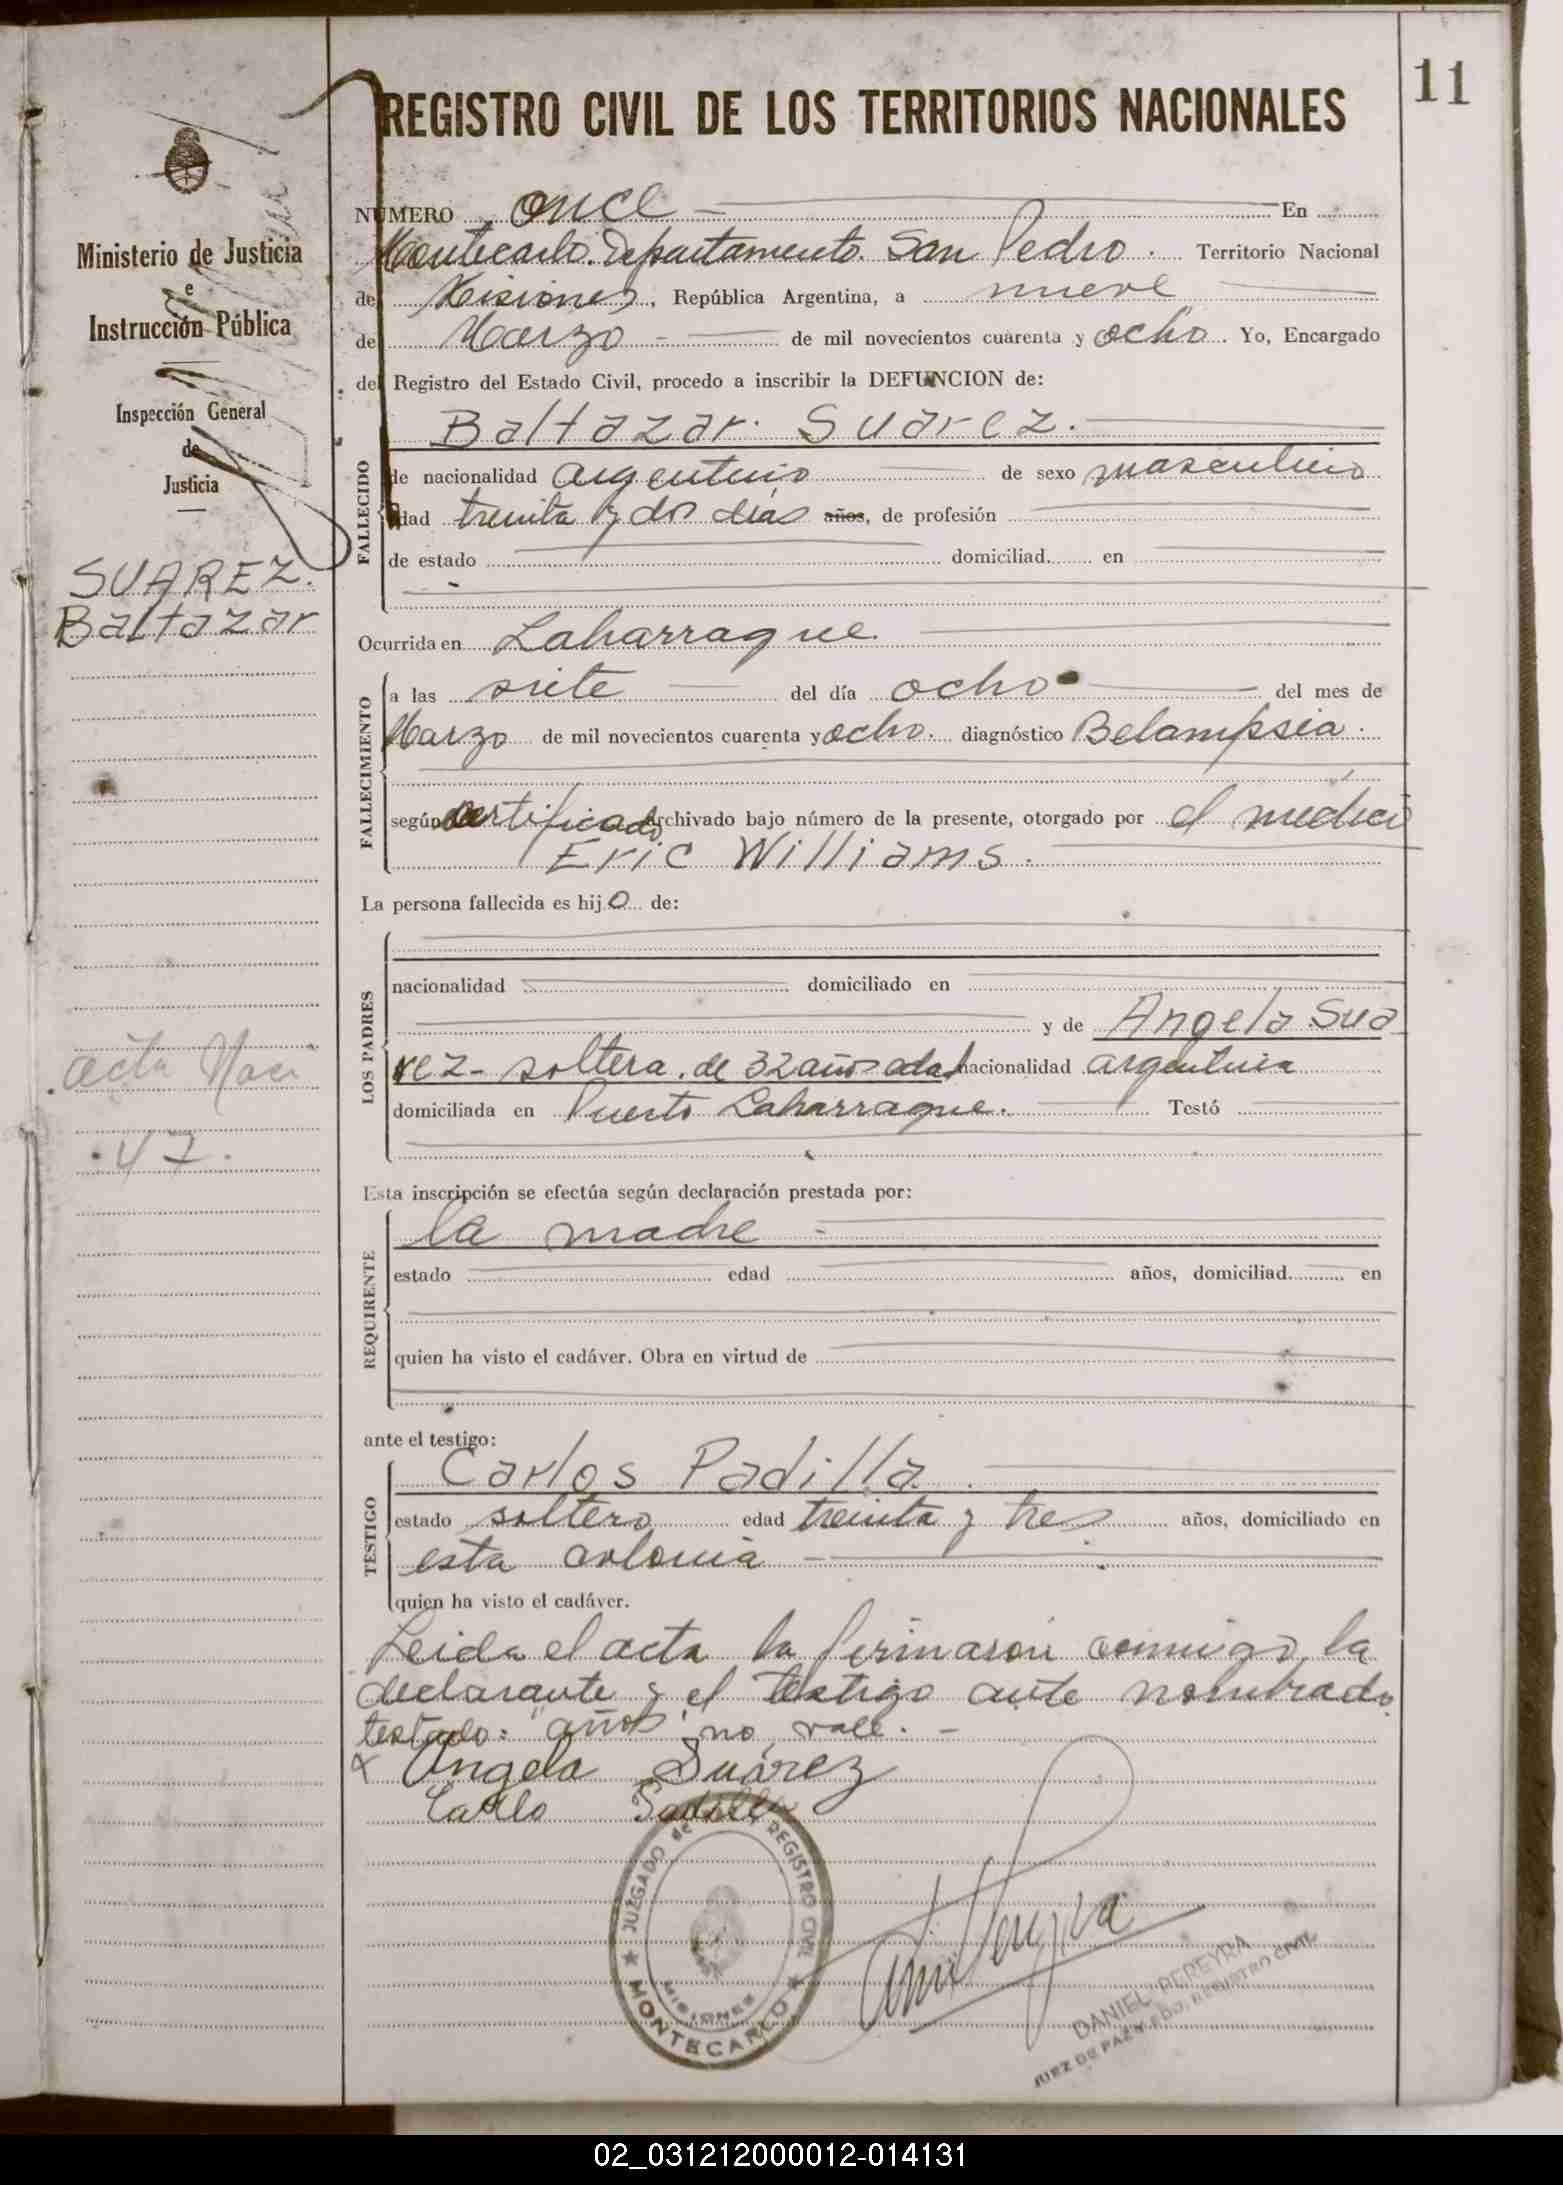 11
REGISTRO CIVIL DE LOS TERRITORIOS NACIONALES
Ministerio de Justicia
e
Instrucción Pública
Inspección General
de
Justicia
SUAREZ.
Baltazar
acta Naci
47.
NUMERO once En
Montecarlo. Departamento. San Pedro. Territorio Nacional
de Misiones, República Argentina, a nueve
de Marzo de mil novecientos cuarenta y ocho. Yo, Encargado
del Registro del Estado Civil, procedo a inscribir la DEFUNCION de:
Baltazar Suarez.
FALLECIDO
de nacionalidad argentino de sexo masculino
Edad treinta y dos días años, de profesión
de estado domiciliad en
Ocurrida en Laharrague.
FALLECIMIENTO
a las siete del día ocho del mes de
Marzo de mil novecientos cuarenta y ocho. diagnóstico Belampsia.
según certificado archivado bajo número de la presente, otorgado por el médico
Eric Williams.
La persona fallecida es hijo de:
LOS PADRES
nacionalidad domiciliado en
y de Angela Sua
rez- soltera. de 32 años edad nacionalidad argentina
domiciliada en Puerto Laharrague. Testó
Esta inscripción se efectúa según declaración prestada por:
REQUIRENTE
la madre
estado edad años, domiciliad en
quien ha visto el cadáver. Obra en virtud de
ante el testigo:
TESTIGO
Carlos Padilla.
estado soltero edad treinta y tres años, domiciliado en
esta colonia
quien ha visto el cadáver.
Leida el acta la firmaron conmigo la
declarante y el testigo ante nombrado.
testado: "años" no vale.-
x Angela Suárez
Carlo Padilla
JUZGADO de REGISTRO CIVIL
MISIONES
MONTECARLO
DANIEL PEREYRA
JUEZ DE PAZ Y EDO. REGISTRO CIVIL
02_031212000012-014131